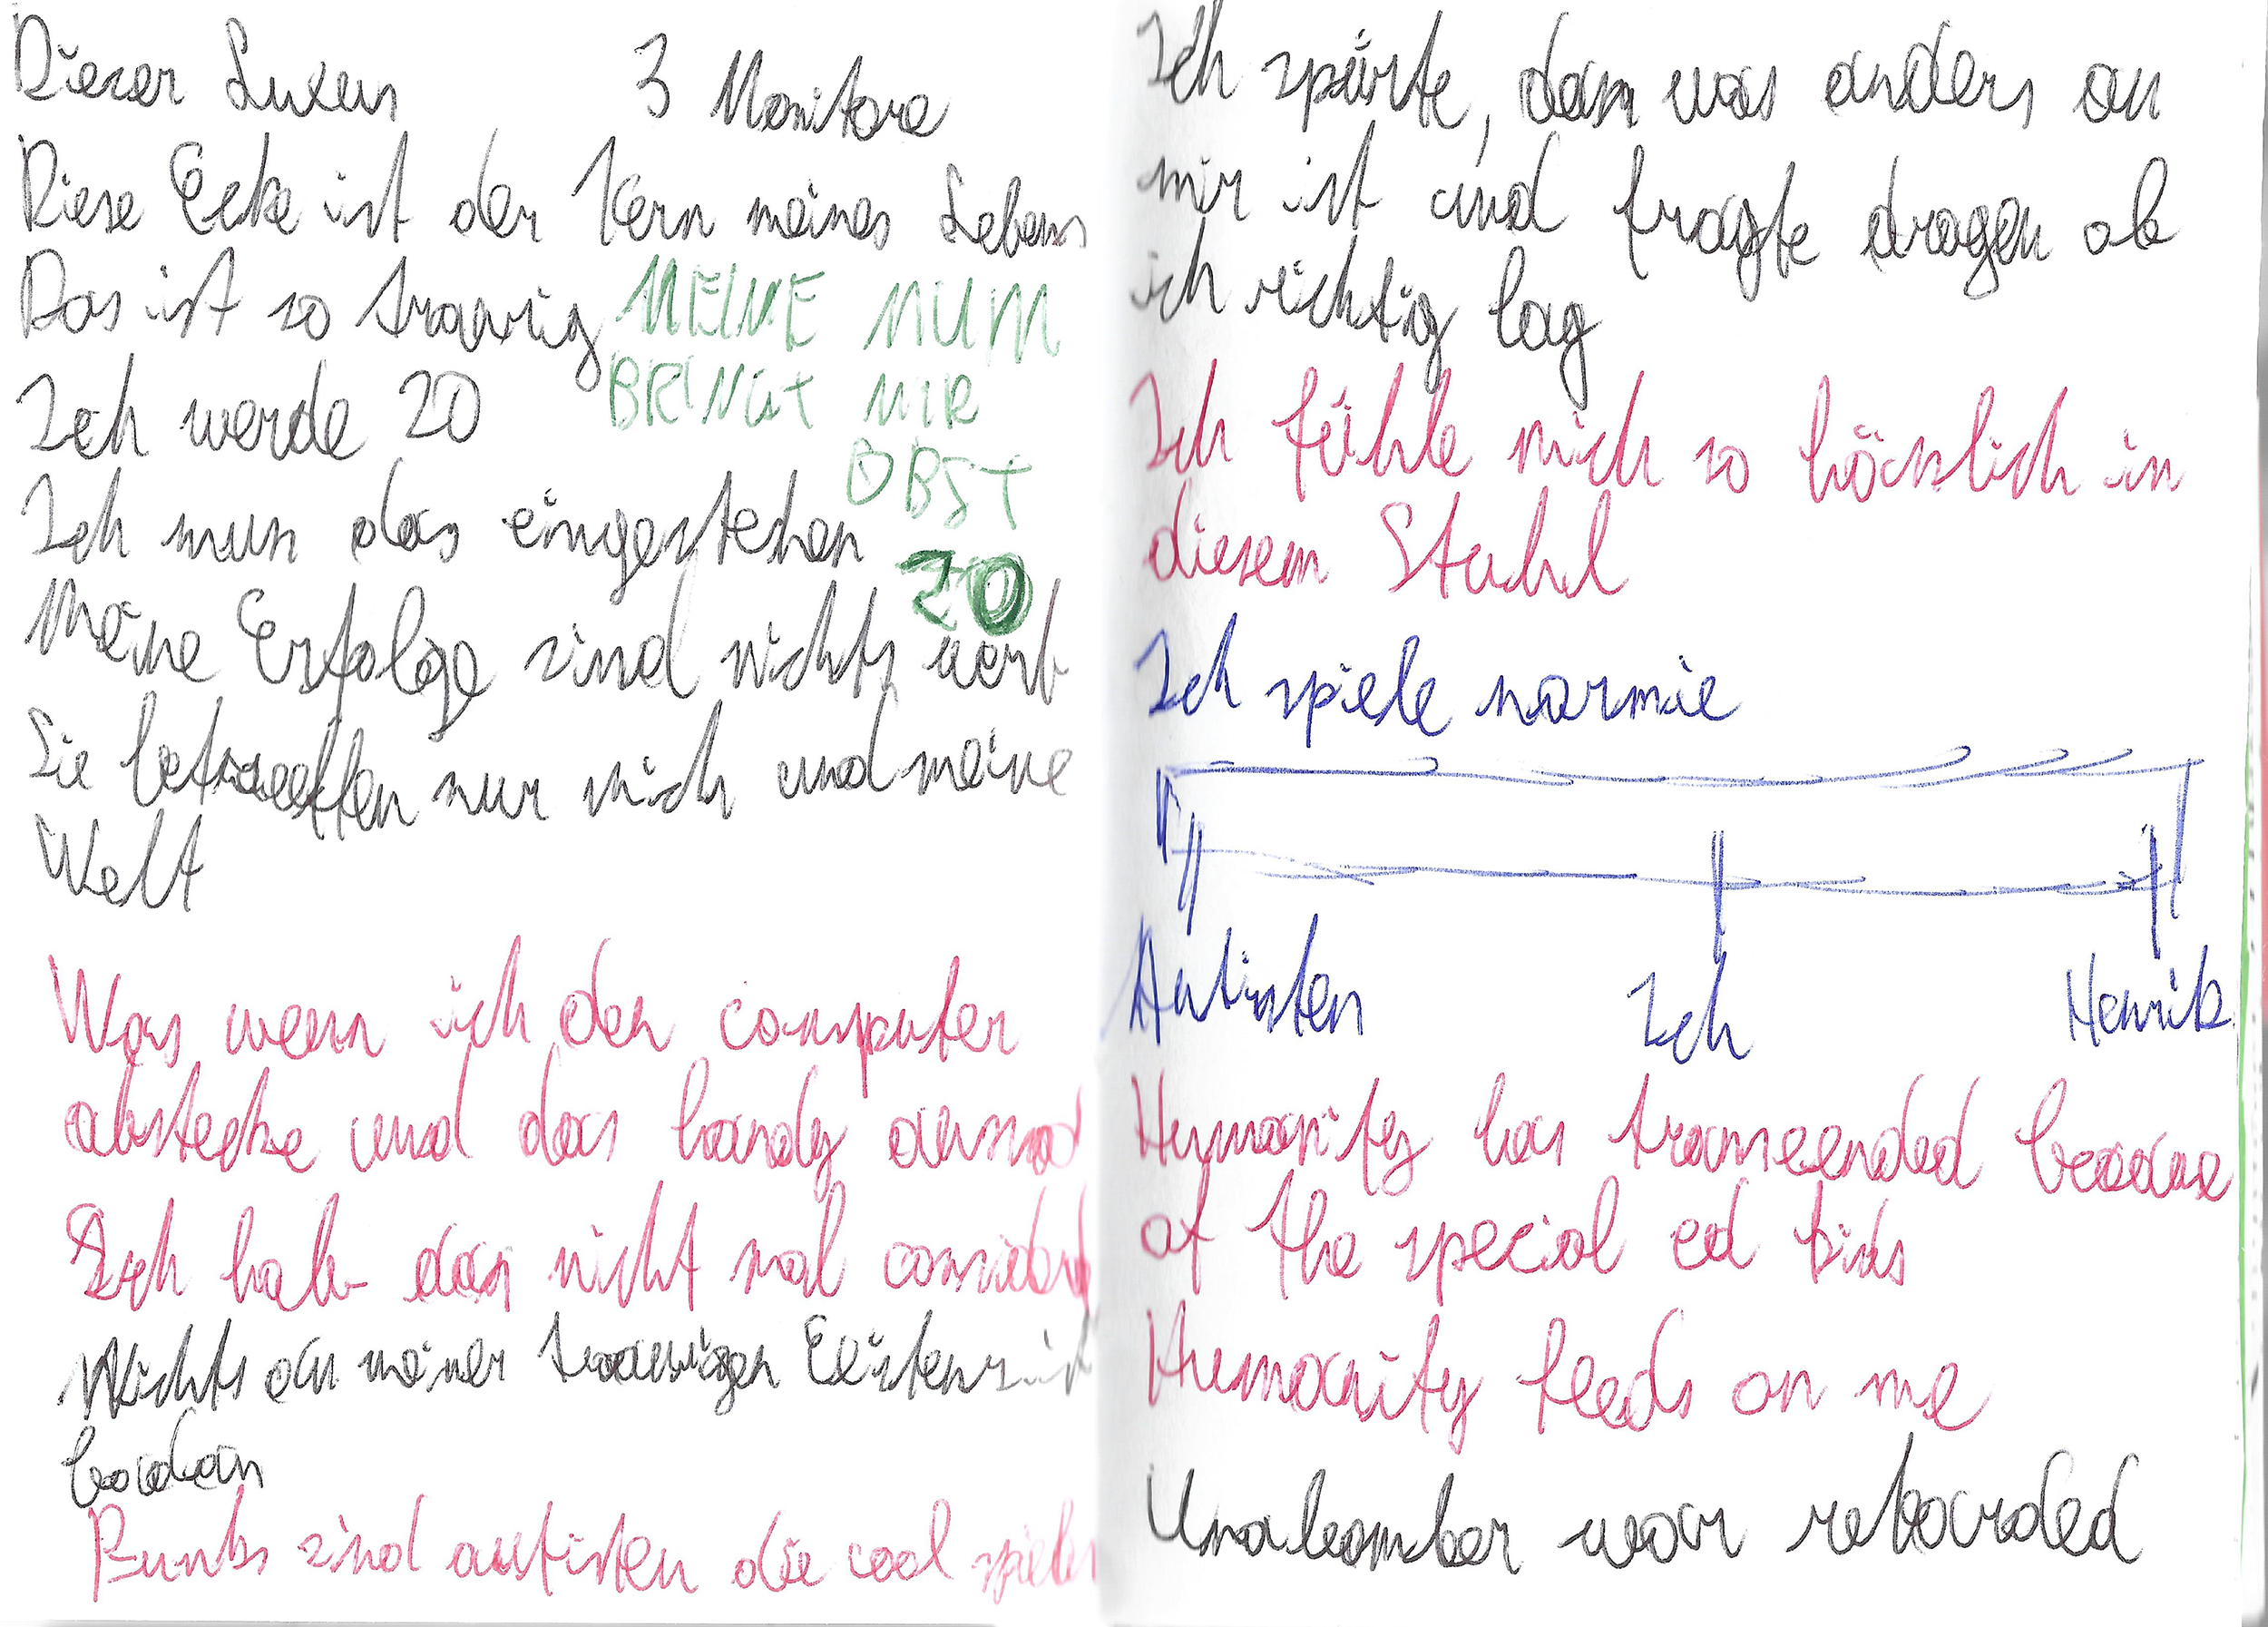 Dieser Luxus 3 Monitore
Diese Ecke ist der Kern meines Lebens
Das ist so traurig
MEINE MUM
BRINGT MIR
OBST
20
Ich werde 20
Ich muss das eingestehen
Meine Erfolge sind nichts wert
Sie betreffen nur mich und meine
Welt
Was wenn ich den computer
abstecke und das handy
Ich hab das nicht mal
Nichts an meiner traurigen Existenz ist
Punks sind autisten die cool spielen
Ich spürte, dass was anders an
mir ist und fragte ob
ich richtig lag
Ich fühle mich so hässlich in
diesem Stuhl
Ich spiele normie
Autisten Ich Henrik
Humanity has transcended because
of the special ed kids
Humanity feeds on me
Unabomber war retarded